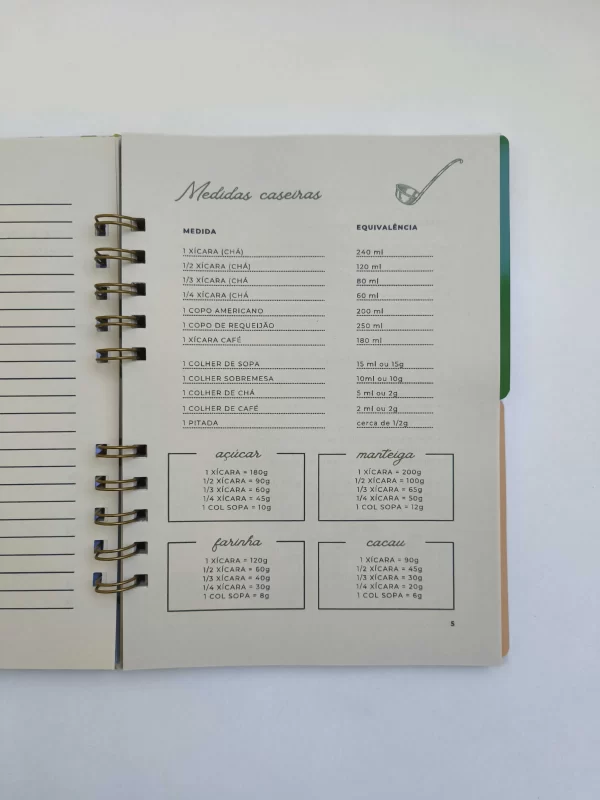 Medidas caseiras
MEDIDA EQUIVALÊNCIA
1 XÍCARA (CHÁ) 240 ml
1/2 XÍCARA (CHÁ) 120 ml
1/3 XÍCARA (CHÁ 80 ml
1/4 XÍCARA (CHÁ 60 ml
1 COPO AMERICANO 200 ml
1 COPO DE REQUEIJÃO 250 ml
1 XÍCARA CAFÉ 180 ml
1 COLHER DE SOPA 15 ml ou 15g
1 COLHER SOBREMESA 10ml ou 10g
1 COLHER DE CHÁ 5 ml ou 2g
1 COLHER DE CAFÉ 2 ml ou 2g
1 PITADA cerca de 1/2g
açúcar
1 XÍCARA = 180g
1/2 XÍCARA = 90g
1/3 XÍCARA = 60g
1/4 XÍCARA = 45g
1 COL SOPA = 10g
manteiga
1 XÍCARA = 200g
1/2 XÍCARA = 100g
1/3 XÍCARA = 65g
1/4 XÍCARA = 50g
1 COL SOPA = 12g
farinha
1 XÍCARA = 120g
1/2 XÍCARA = 60g
1/3 XÍCARA = 40g
1/4 XÍCARA = 30g
1 COL SOPA = 8g
cacau
1 XÍCARA = 90g
1/2 XÍCARA = 45g
1/3 XÍCARA = 30g
1/4 XÍCARA = 20g
1 COL SOPA = 6g
5